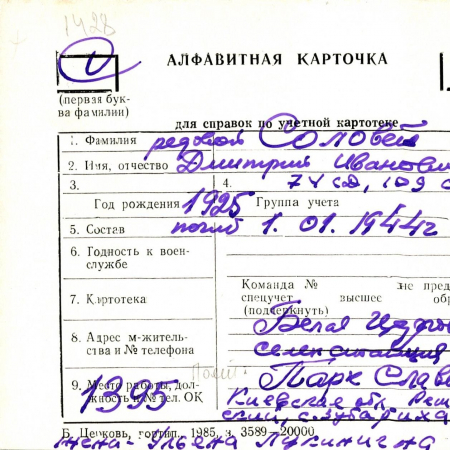 1428
АЛФАВИТНАЯ КАРТОЧКА
(первая бук-
ва фамилии)
для справок по учетной картотеке
1. Фамилия рядовой Соловей
2. Имя, отчество Дмитрий Иванови
3. 4. 74 сд, 109 с
Год рождения 1925 Группа учета
5. Состав погиб 1.01.1944г
6. Годность к воен-
службе
Команда № не пред
7. Картотека спецучет высшее об
(подчеркнуть)
8. Адрес м-житель-
ства и № телефона
Белая Церковь
9. Место работы, дол-
жность и № тел. ОК
1395
Парк Славы
Киевская обл.
Б. Церковь, гортип., 1985, з. 3589—20000
жена-